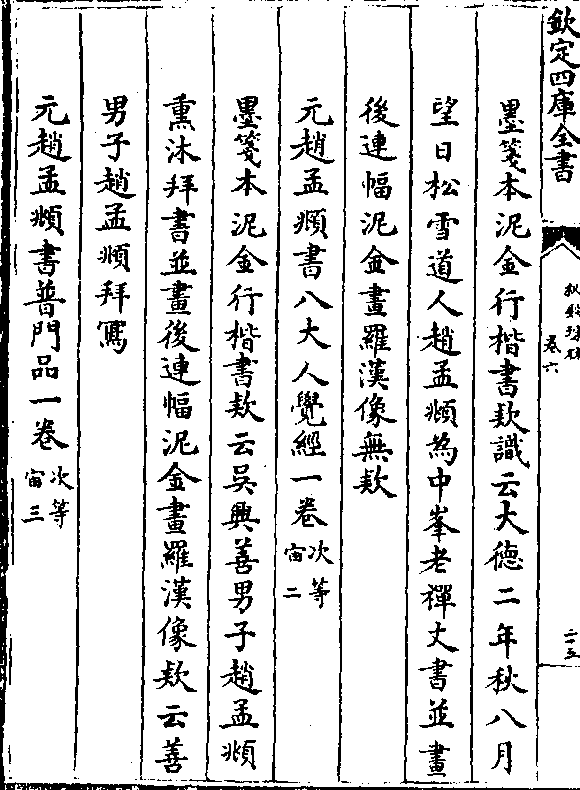 欽定四庫全書
卷六
二十五
墨箋本泥金行楷書欵識云大德二年秋八月
望日松雪道人趙孟頫為中峯老禪丈書並畫
後連幅泥金畫羅漢像無欵
元趙孟頫書八大人覺經一卷次等宙二
墨箋本泥金行楷書欵云吳興善男子趙孟頫
熏沐拜書並畫後連幅泥金畫羅漢像欵云善
男子趙孟頫拜寫
元趙孟頫書普門品一卷次等宙三